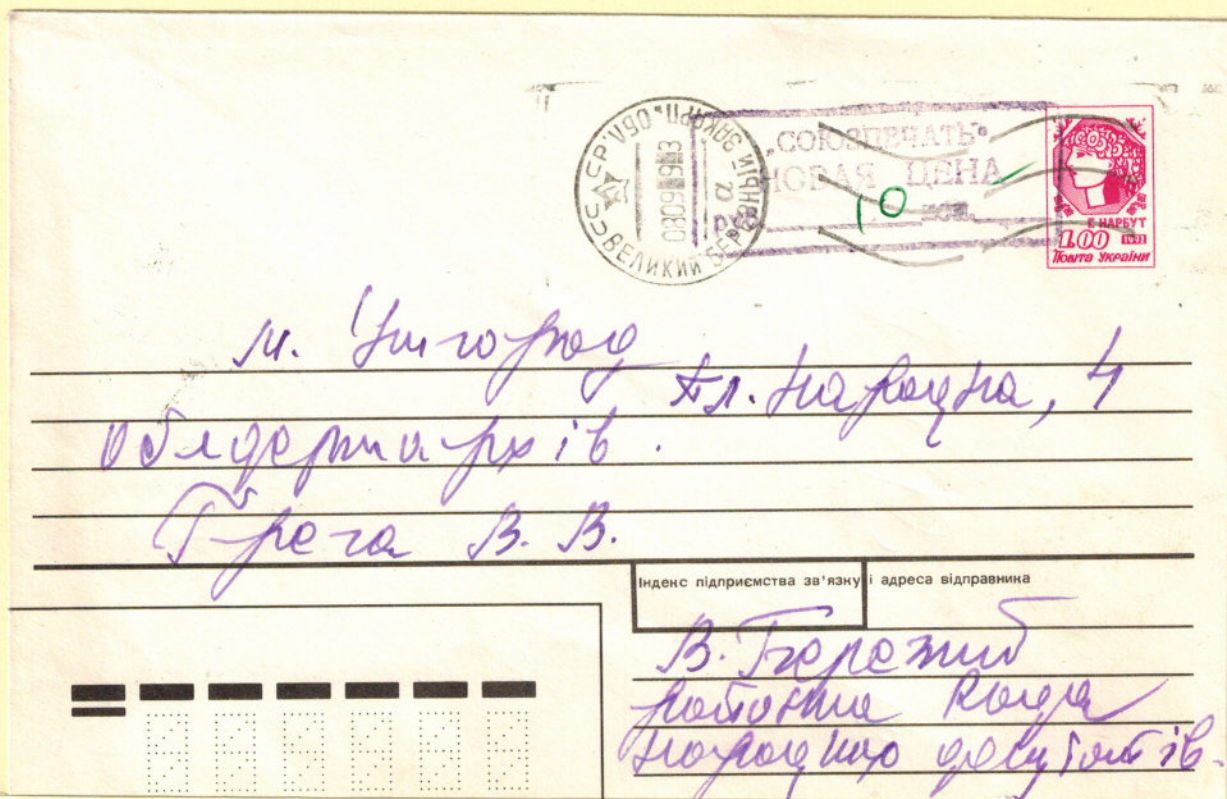 СССР ЗАКАРП. ОБЛ.
ВЕЛИКИЙ БЕРЕЗНЫЙ
080919 93
а
„СОЮЗПЕЧАТЬ"
НОВАЯ ЦЕНА
10
руб
Г. НАРБУТ
1.00 1991
Пошта України
м. Ужгород
пл. Народна, 4
облдержархів.
В. В.
Індекс підприємства зв'язку і адреса відправника
В. Березний
районна Рада
народних депутатів.